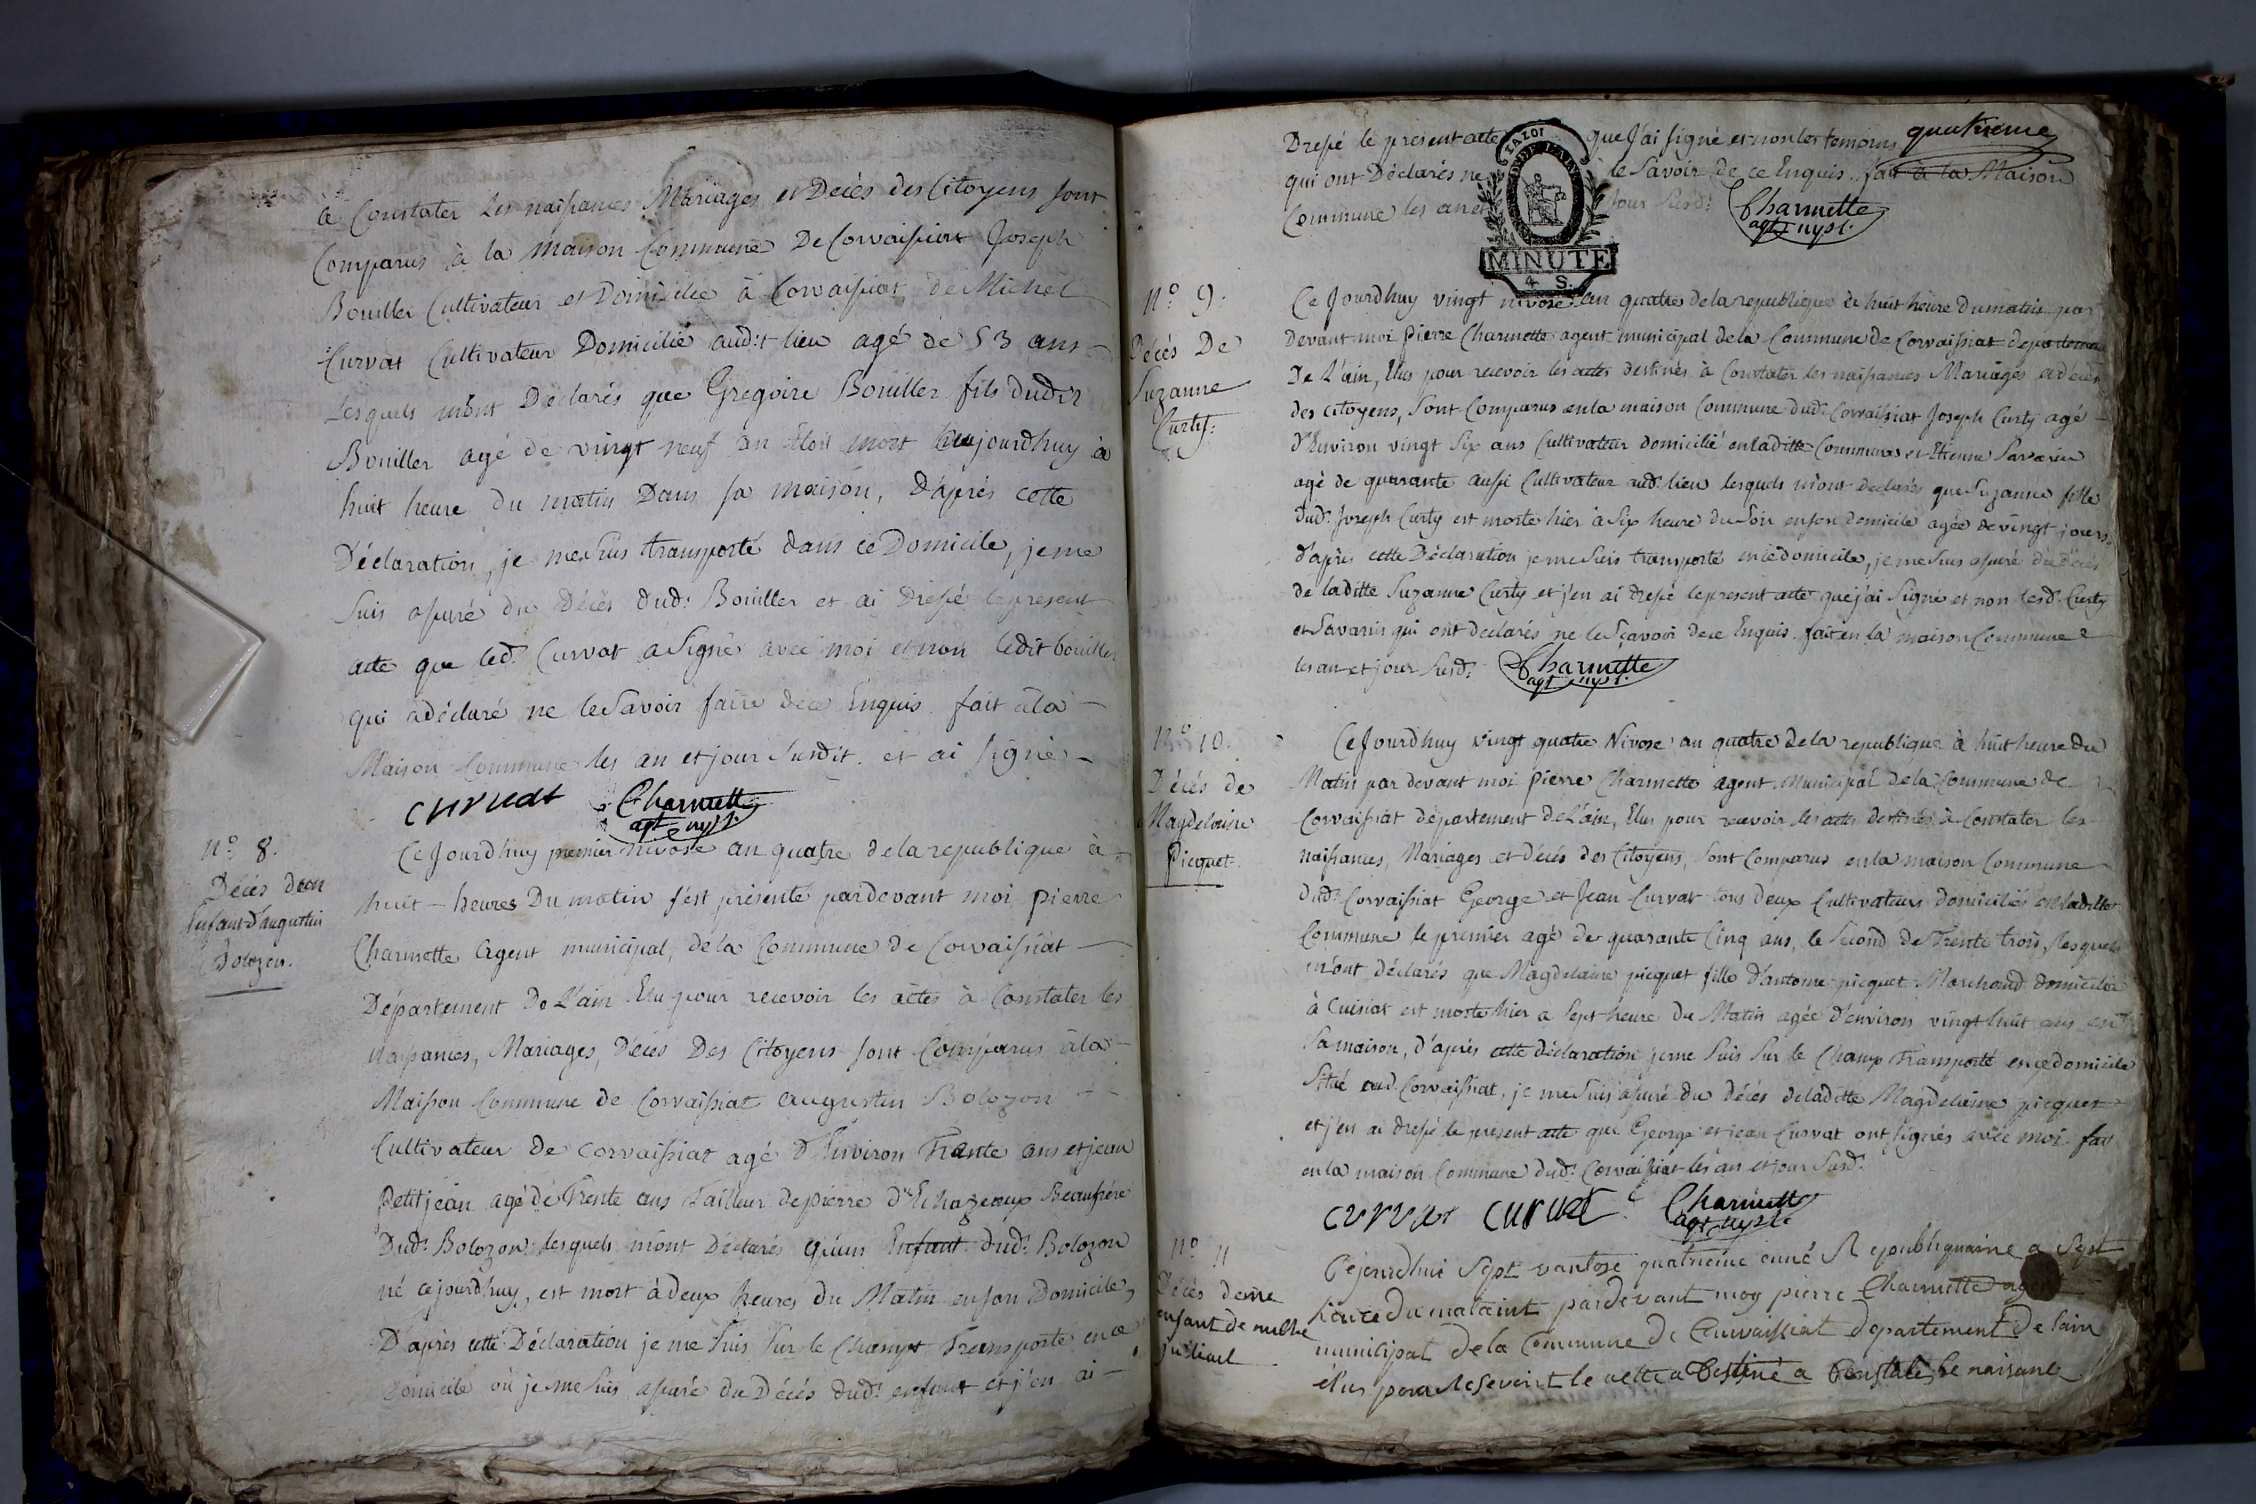 à Constater Les naissances Mariages et Decès des Citoyens sont
Comparus à la maison Commune De Corvaissiat Joseph
Bouiller Cultivateur et Domicilié à Corvaissiat de Michel
Curvat Cultivateur Domicilié audit lieu agé de 53 ans
Lesquels m'ont Déclarés que Gregoire Bouiller fils dudit
Bouiller agé de vingt neuf an étoit mort aujourdhuy à
huit heure du matin Dans sa maison, d'après cette
Déclaration, je me suis transporté dans ce Domicile, je me
suis assuré du décès dud: Bouiller et ai dressé le present
acte que led: Curvat a Signé avec moi et non ledit bouiller
qui a déclaré ne le Savoir faire de ce Enquis. fait à la
Maison Commune les an et jour Susdit. et ai signé
curvat Charmette
agt mpl.
N.º 8.
Décès d'un
Enfant d'augustin
Bolozon.
Ce Jourdhuy premier nivose an quatre de la republique à
huit heures Du matin s'est présenté pardevant moi pierre
Charmette Agent municipal, de la Commune de Corvaissiat
Département De L'ain Elu pour recevoir les actes à Constater les
naissances, Mariages, Décès Des Citoyens sont Comparus à la
Maison Commune de Corvaissiat augustin Bolozon
Cultivateur de corvaissiat agé d'Environ Trente ans et jean
Petitjean agé de Trente ans Tailleur de pierre d'Echazeaux Beaufrère
Dud: Bolozon lesquels m'ont Déclarés qu'un Enfant dud: Bolozon
né cejourdhuy, est mort à deux heures du Matin en son Domicile,
D'après cette Déclaration je me suis sur le Champt Transporté en ce
Domicile où je me suis assuré du Décès dud: enfant et j'en ai
Dressé le present acte que J'ai signé et non les temoins
qui ont Déclarés ne le Savoir de ce Enquis. fait à la Maison
Commune les an et jour Susd: Charmette
agt mpl.
quatrieme
MINUTE
4 S.
N.º 9.
Décès De
Suzanne
Curty.
Ce Jourdhuy vingt nivose an quatre de la republique à huit heure du matin par
devant moi pierre Charmette agent municipal de la Commune de Corvaissiat
De L'ain, Elus pour recevoir les actes destinés à Constater les naissances Mariages et décès
des citoyens, sont Comparus en la maison Commune dud: Corvaissiat Joseph Curty agé
d'Environ vingt six ans Cultivateur domicilié en laditte Commune et Etienne Savarin
agé de quarante aussi Cultivateur aud: lieu lesquels m'ont declarés que Suzanne fille
dud: Joseph Curty est morte hier à six heure du Soir en son domicile agée de vingt jours,
d'après cette Déclaration je me suis transporté en ce domicile, je me suis assuré du décès
de laditte Suzanne Curty et j'en ai dressé le present acte que j'ai Signé et non lesd: Curty
et Savarin qui ont declarés ne le Sçavoir de ce Enquis. fait en la maison Commune
les an et jour Susd: Charmette
agt mpl.
N.º 10.
Décès de
Magdelaine
Picquet.
Ce Jourdhuy vingt quatre Nivose an quatre de la republique à huit heure du
Matin par devant moi pierre Charmette agent Municipal de la Commune de
Corvaissiat département de L'ain, Elus pour recevoir les actes destinés à Constater les
naissances, Mariages et décès des Citoyens, sont Comparus en la maison Commune
dud: Corvaissiat George et Jean Curvat tous deux Cultivateurs domiciliés en laditte
Commune le premier agé de quarante Cinq ans, le Second de Trente trois, lesquels
m'ont déclarés que Magdelaine picquet fille d'antoine picquet Marchand domicilié
à Cuisiat est morte hier a sept heure du Matin agée d'environ vingt huit ans en
Sa maison, d'après cette déclaration je me suis sur le Champ Transporté en ce domicile
situé aud: Corvaissiat, je me suis assuré du décès de laditte Magdelaine picquet
et j'en ai dressé le présent acte que George et jean Curvat ont signés avec moi fait
en la maison Commune dud: Corvaissiat les an et jour Susd:
curvat curvat Charmette
agt mpl
N.º 11
Décès d'eune
enfant de
Cejourdhui Sept vantose quatrieme anné Republiquaine a Sept
heure du mataint pardevant moy pierre Charmette
municipal de la Commune de Courvaissiat departement de lain
élus pour Reseveoir le acte a Destiné a Constaté le naisance